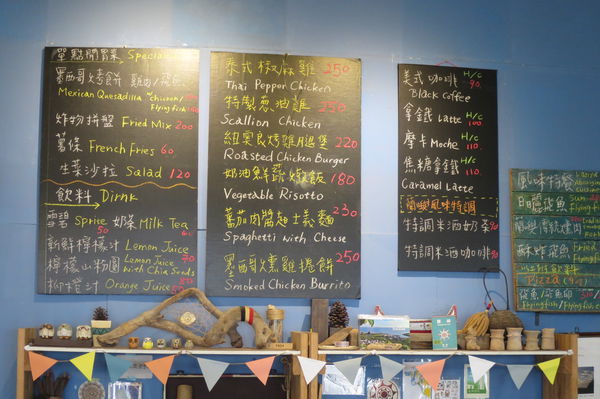 單點開胃菜 Special
墨西哥烤餅 雞肉/飛魚
Mexican Quesadilla w/ chicken/
Flyingfish
炸物拼盤 Fried Mix 200
薯條 French Fries 60
生菜沙拉 Salad 120
飲料 Dirnk
雪碧 Sprise 50 奶茶 Milk Tea 60
新鮮檸檬汁 Lemon Juice 50
檸檬山粉圓 Lemon Juice 70
with Chia Seeds
柳橙汁 Orange Juice 80
泰式椒麻雞 250
Thai Pepper Chicken
特製蔥油雞 250
Scallion Chicken
紐奧良烤雞腿堡 220
Roasted Chicken Burger
奶油鮮蔬燉飯 180
Vegetable Risotto
蕃茄肉醬起士義麵 230
Spaghetti with Cheese
墨西哥燻雞捲餅 250
Smoked Chicken Burrito
美式咖啡 H/C 90
Black Coffee
拿鐵 Latte H/C 100
摩卡 Moche H/C 110
焦糖拿鐵 H/C 110
Caramel Latte
蘭嶼風味特調
特調米酒奶茶 90
特調米酒咖啡 90
風味特餐
蘭嶼傳統烤肉
酥炸飛魚
Pizza
飛魚/飛魚卵
Flyingfish/